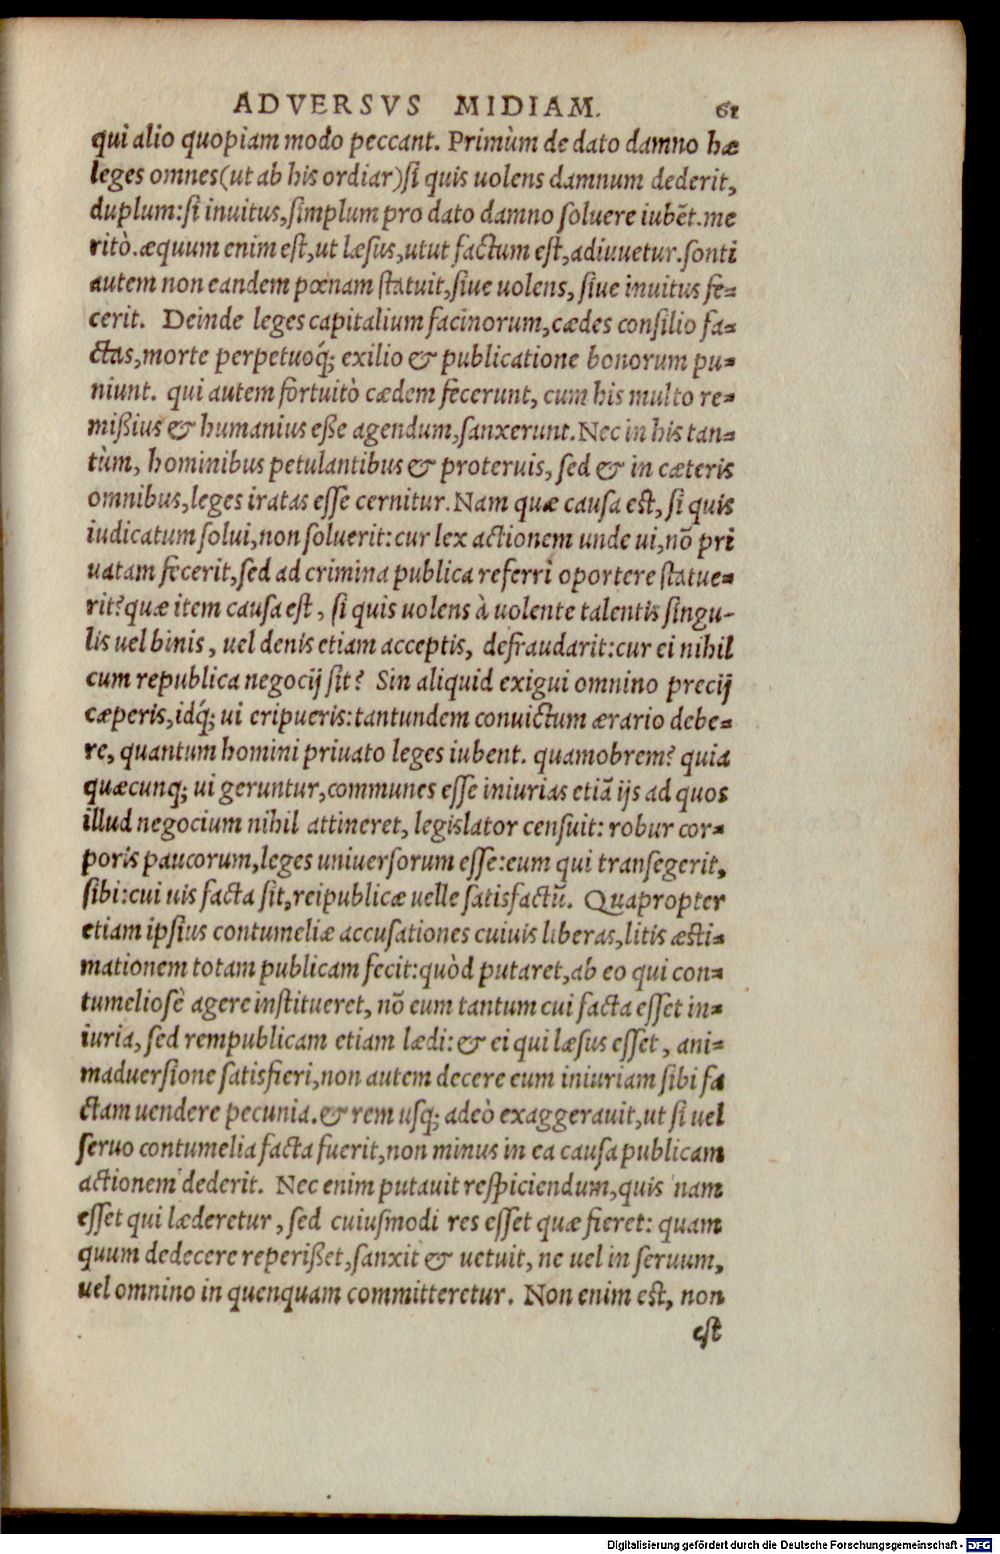 ADVERSVS MIDIAM. 61
qui alio quopiam modo peccant. Primùm de dato damno hæ
leges omnes(ut ab his ordiar)si quis uolens damnum dederit,
duplum:si inuitus,simplum pro dato damno soluere iubẽt.me
ritò.æquum enim est,ut læsus,utut factum est,adiuuetur.sonti
autem non eandem pœnam statuit,siue uolens, siue inuitus fe-
cerit. Deinde leges capitalium facinorum,cædes consilio fa-
ctas,morte perpetuoq́; exilio & publicatione bonorum pu-
niunt. qui autem fortuitò cædem fecerunt, cum his multo re-
mißius & humanius eße agendum,sanxerunt. Nec in his tan-
tùm, hominibus petulantibus & proteruis, sed & in cæteris
omnibus,leges iratas esse cernitur. Nam quæ causa est, si quis
iudicatum solui,non soluerit:cur lex actionem unde ui,nõ pri
uatam fecerit,sed ad crimina publica referri oportere statue-
rit?quæ item causa est, si quis uolens à uolente talentis singu-
lis uel binis, uel denis etiam acceptis, defraudarit:cur ei nihil
cum republica negocij sit? Sin aliquid exigui omnino precij
cæperis,idq́; ui eripueris:tantundem conuictum ærario debe-
re, quantum homini priuato leges iubent. quamobrem? quia
quæcunq; ui geruntur,communes esse iniurias etiã ijs ad quos
illud negocium nihil attineret, legislator censuit: robur cor-
poris paucorum,leges uniuersorum esse:eum qui transegerit,
sibi:cui uis facta sit,reipublicæ uelle satisfactũ. Quapropter
etiam ipsius contumeliæ accusationes cuiuis liberas,litis æsti-
mationem totam publicam fecit:quòd putaret,ab eo qui con-
tumeliosè agere institueret, nõ eum tantum cui facta esset in-
iuria, sed rempublicam etiam lædi: & ei qui læsus esset, ani-
maduersione satisfieri,non autem decere eum iniuriam sibi fa
ctam uendere pecunia.& rem usq; adeò exaggerauit,ut si uel
seruo contumelia facta fuerit,non minus in ea causa publicam
actionem dederit. Nec enim putauit respiciendum,quis nam
esset qui læderetur, sed cuiusmodi res esset quæ fieret: quam
quum dedecere reperißet,sanxit & uetuit, ne uel in seruum,
uel omnino in quenquam committeretur. Non enim est, non
est
Digitalisierung gefördert durch die Deutsche Forschungsgemeinschaft - DFG